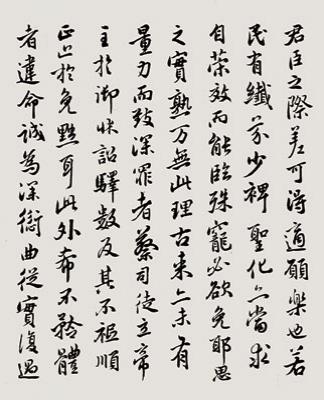 君臣之際差可得道願樂也若
民有纖芥少裨聖化亦當求
自榮效而能臨殊寵必欲免耶思
之實熟万無此理古来亦未有
量力而致深罪者蔡司徒立帝
主於御床詔驛數反其不祗順
正止於免黜耳此外希不矜體
者違命誠為深愆曲從實復過